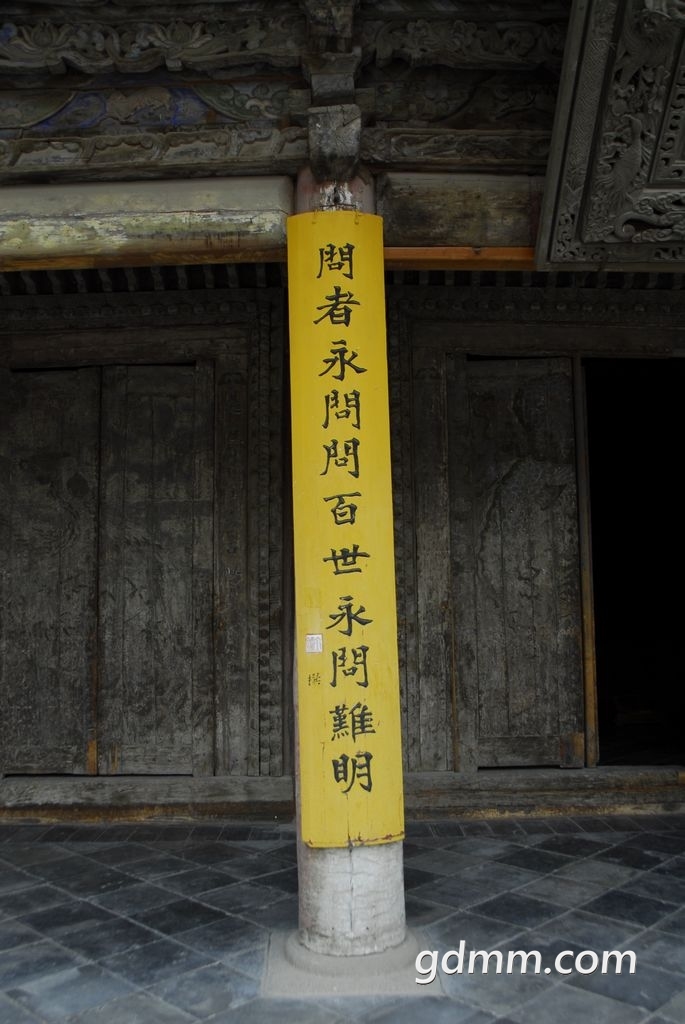 問者永問問百世永問難明
撰
gdmm.com